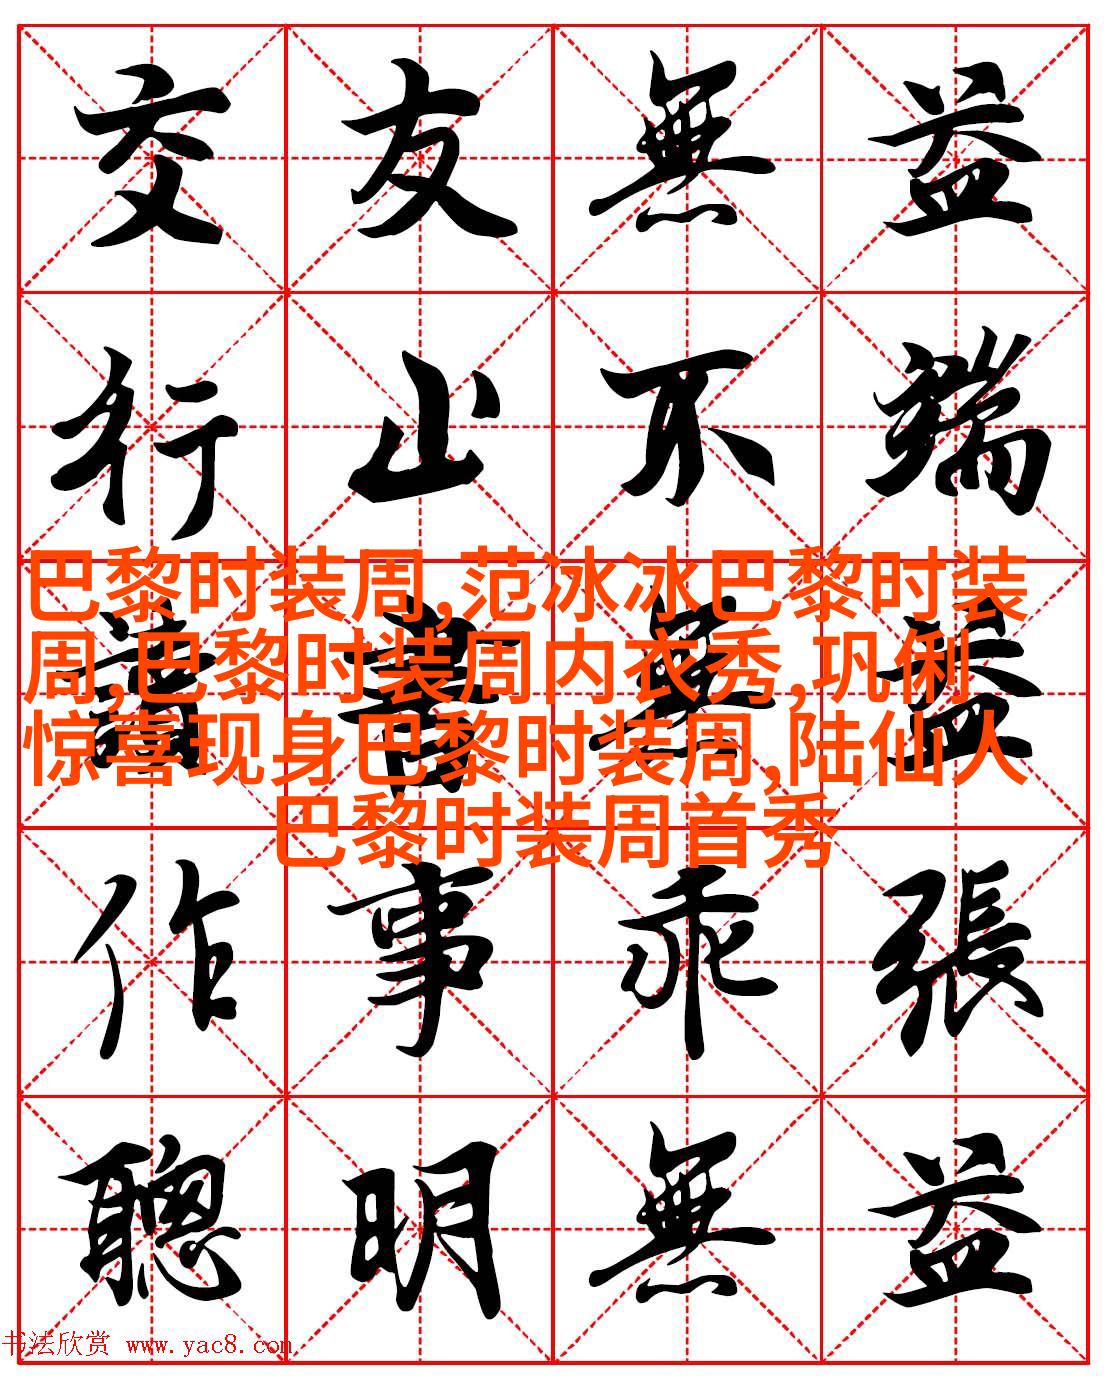 交友無益
行止不端
巴黎时装周,范冰冰巴黎时装
周,巴黎时装周内衣秀,巩俐
惊喜现身巴黎时装周,陆仙人
巴黎时装周首秀
讀書無益
作事乖張
聰明無益
书法欣赏 www.yac8.com